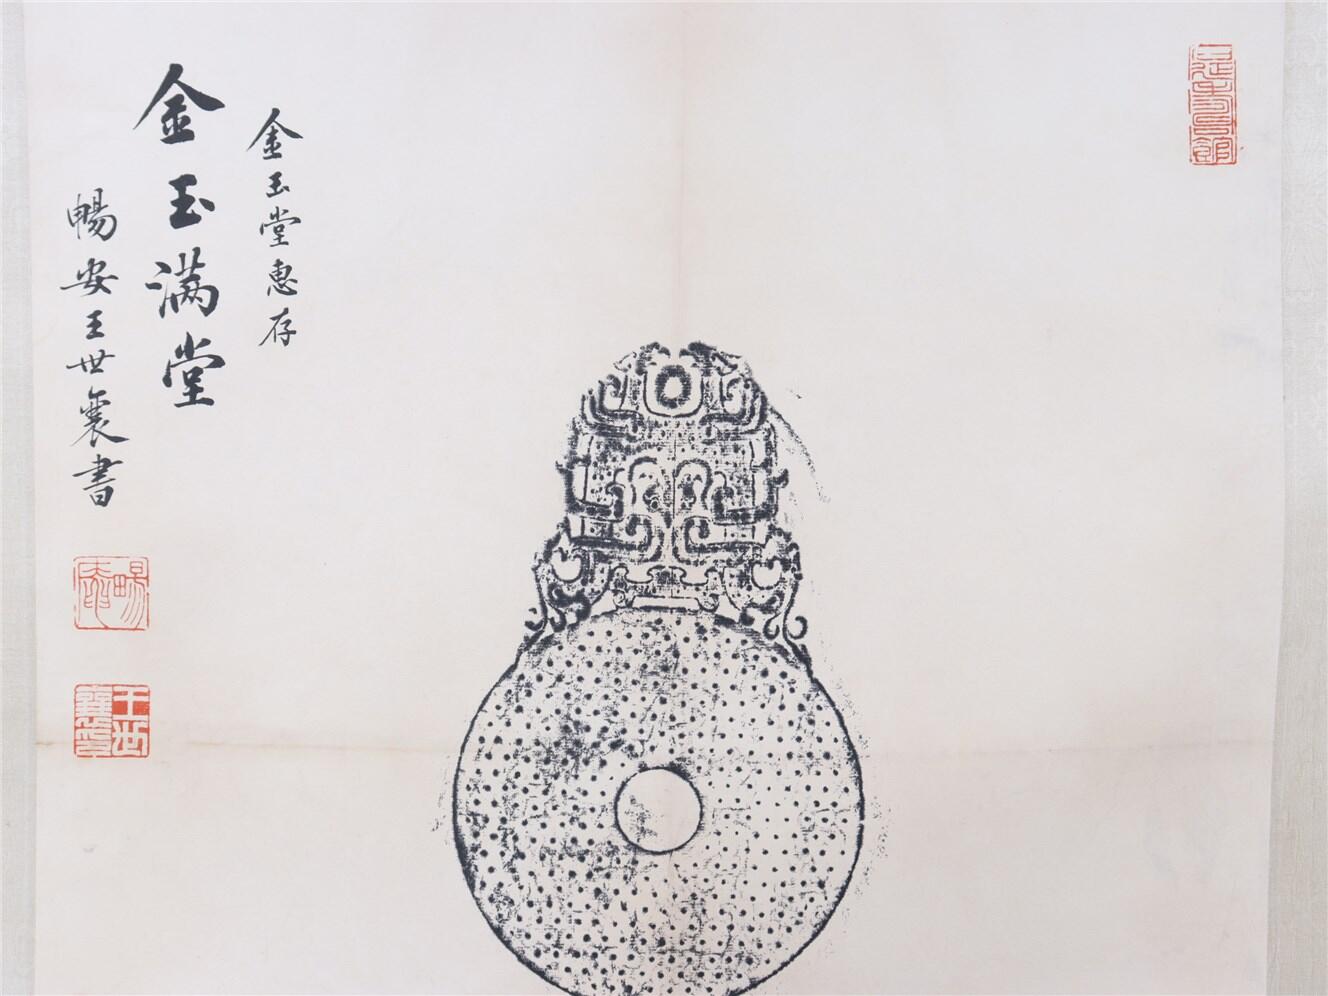 金玉堂惠存
金玉满堂
暢安王世襄書
暢安
王世襄印